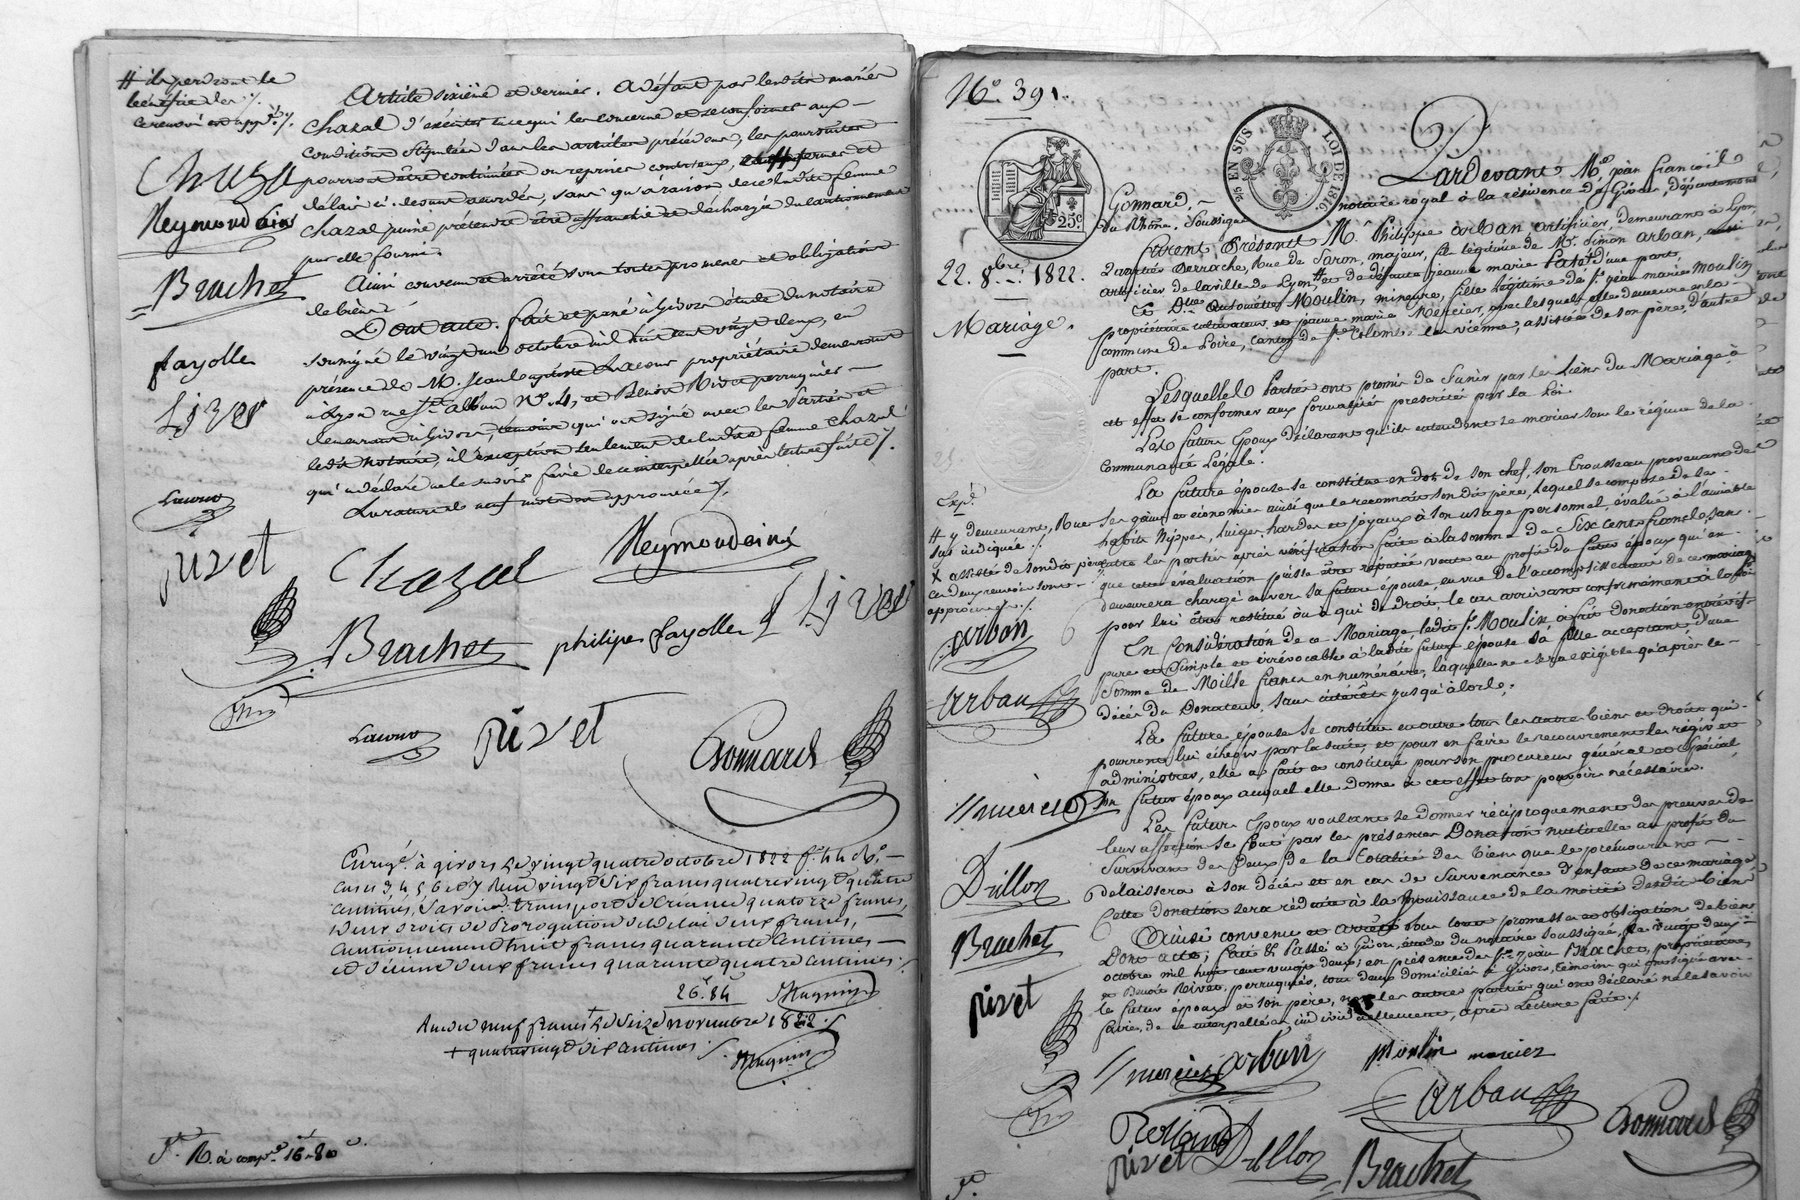 # ils perdront le
bénéfice des /.
ce renvoi est app.é /.
Chazal
Neymondaine
Brachet
fayolle
Liver
Lacour
pivet
Article sixième et dernier. A défaut par lesdits mariés
Chazal d'exécuter ce qui les concerne et se conformer aux
conditions stipulées dans les articles précédens, les poursuites
pourront être continuées ou reprises contr'eux,
délais ci-dessus accordés, sans qu'à raison de ce ladite femme
Chazal puisse prétendre être affranchie et déchargée du cautionnement
par elle fourni.
Ainsi convenu et arrêté sous toutes promesses et obligations
de biens
Dont acte. fait et passé à Givors étude du notaire
soussigné le vingt un octobre mil huit cent vingt deux, en
présence de M. Jean baptiste Lacour propriétaire demeurant
à Lyon rue St. alban N.o 4, et Benoit Rivet perruquier
demeurant à Givors, témoins qui ont signé avec les Parties et
ledit notaire, à l'exception seulement de ladite femme Chazal
qui a déclaré ne le savoir faire de ce interpellée après lecture faite /.
Les ratures de neuf mots sont approuvées /.
Chazal Neymondaine
Brachet philipe fayolle Liver
Lacour pivet Gonnard
Enreg.é à givors le vingt quatre octobre 1822 f.o 44 v.o
cases 3 4 5 6 et 7 Reçu vingt six francs quatrevingt quatre
centimes, Savoir: transport de Créance quatorze francs,
deux droits de Prorogation de délai deux francs,
Cautionnement huit francs quarante centimes
et décime deux francs quarante quatre centimes /.
26.f 84
neuf francs + le seize novembre 1822 /.
+ quatrevingt six centimes /.
16-80
N.o 391.
25 EN SUS LOI DE 1816
25c
22. 8.bre 1822.
Mariage.
Expé.
# y demeurant, Rue
sus indiquée /.
X assistée de son dit père
ces deux renvois sont
approuvés /.
arban
arban
mercier
Drillon
Brachet
pivet
Pardevant M.e jean françois
Gonnard, notaire royal à la résidence de Givors, département
du Rhône, soussigné
furent Présents M. Philippe arban, artificier, demeurant à Lyon,
quartier Perrache, Rue de Saron, majeur, fils légitime de M. Simon arban,
artificier de la ville de Lyon, # et de défunte jeanne marie d'une part,
Et D.lle antoinette Moulin, mineure, fille légitime de s.r jean marie moulin
propriétaire cultivateur, et jeanne marie Mercier, avec lesquels elle demeure en la
commune de Loire, canton de s.te Colombe-les-vienne, assistée de son père, d'autre
part.
Lesquelles Parties ont promis de s'unir par les liens du Mariage, à
cet effet se conformer aux formalités prescrites par la Loi.
Les futurs Epoux déclarent qu'ils entendent se marier sous le régime de la
Communauté Légale.
La future épouse se constitue en dot de son chef, son trousseau provenant de
ses gains et économies ainsi que le reconnait son dit père, lequel se compose de ses
habits Nippes, linges, hardes et joyaux à son usage personnel, évalué à l'amiable
entre les parties après vérification faite à la somme de Six cents francs, sans
que cette évaluation puisse être réputée vente au profit du futur époux qui en
demeurera chargé envers sa future épouse, en vue de l'accomplissement de ce mariage
pour lui être restitué ou à qui de droit, le cas arrivant conformément à la loi.
En Considération de ce Mariage, ledit s.r Moulin, a fait donation entrevifs
pure et Simple et irrévocable à ladite future épouse sa fille acceptant d'une
somme de Mille francs en numéraire, laquelle ne sera exigible qu'après le
décès du Donateur, sans intérêts jusqu'alors;
La future épouse se constitue en outre tous les autres biens et droits qui
pourront lui échoir par la suite, et pour en faire le recouvrement les régir et
administrer, elle a fait et constitué pour son procureur général et spécial
son futur époux auquel elle donne à cet effet tout pouvoir nécessaire.
Les futurs Epoux voulant se donner réciproquement des preuves de
leur affection se font par les présentes Donation mutuelle au profit du
Survivant des deux de la totalité des biens que le prémourant
délaissera à son décès et en cas de Survenance d'enfans de ce mariage
Cette donation sera réduite à la jouissance de la moitié desdits biens
Ainsi convenu et arrêté sous toute promesse et obligation de biens
Dont acte; fait & Passé à Givors, étude du notaire soussigné, le vingt deux
octobre mil huit cent vingt deux; en présence de s.rs jean Brachet, propriétaire,
et Benoit Rivet, perruquier, tous deux domiciliés à Givors, témoins qui ont signé avec
le futur époux et son père, non les autres parties qui ont déclaré ne le savoir
faire, de ce interpellées individuellement, après Lecture faite /.
mercier arban Moulin mercier
arban
Gonnard
Rolland
pivet Drillon
Brachet